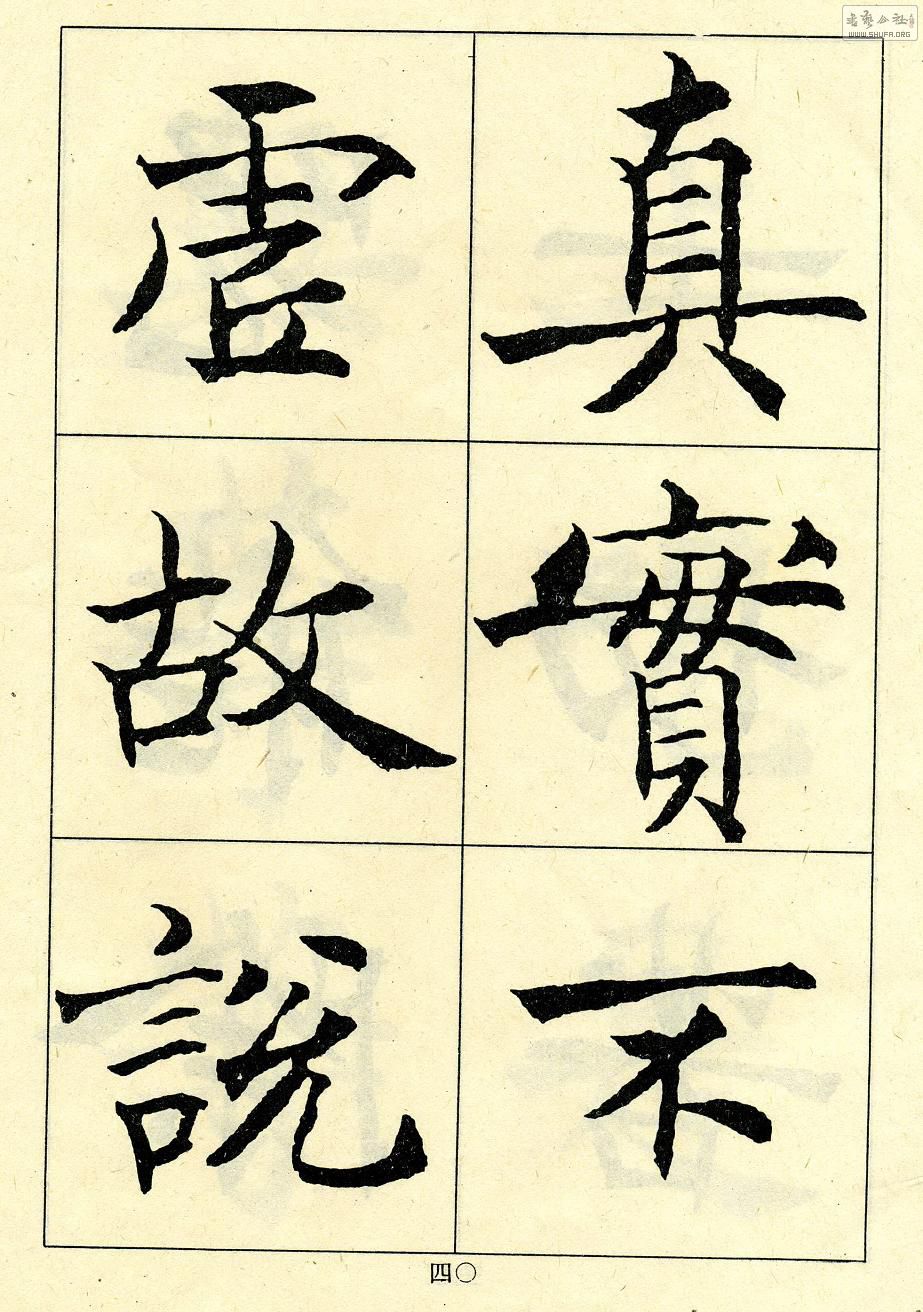 真實不
虛故說
四〇
書藝公社
WWW.SHUFA.ORG